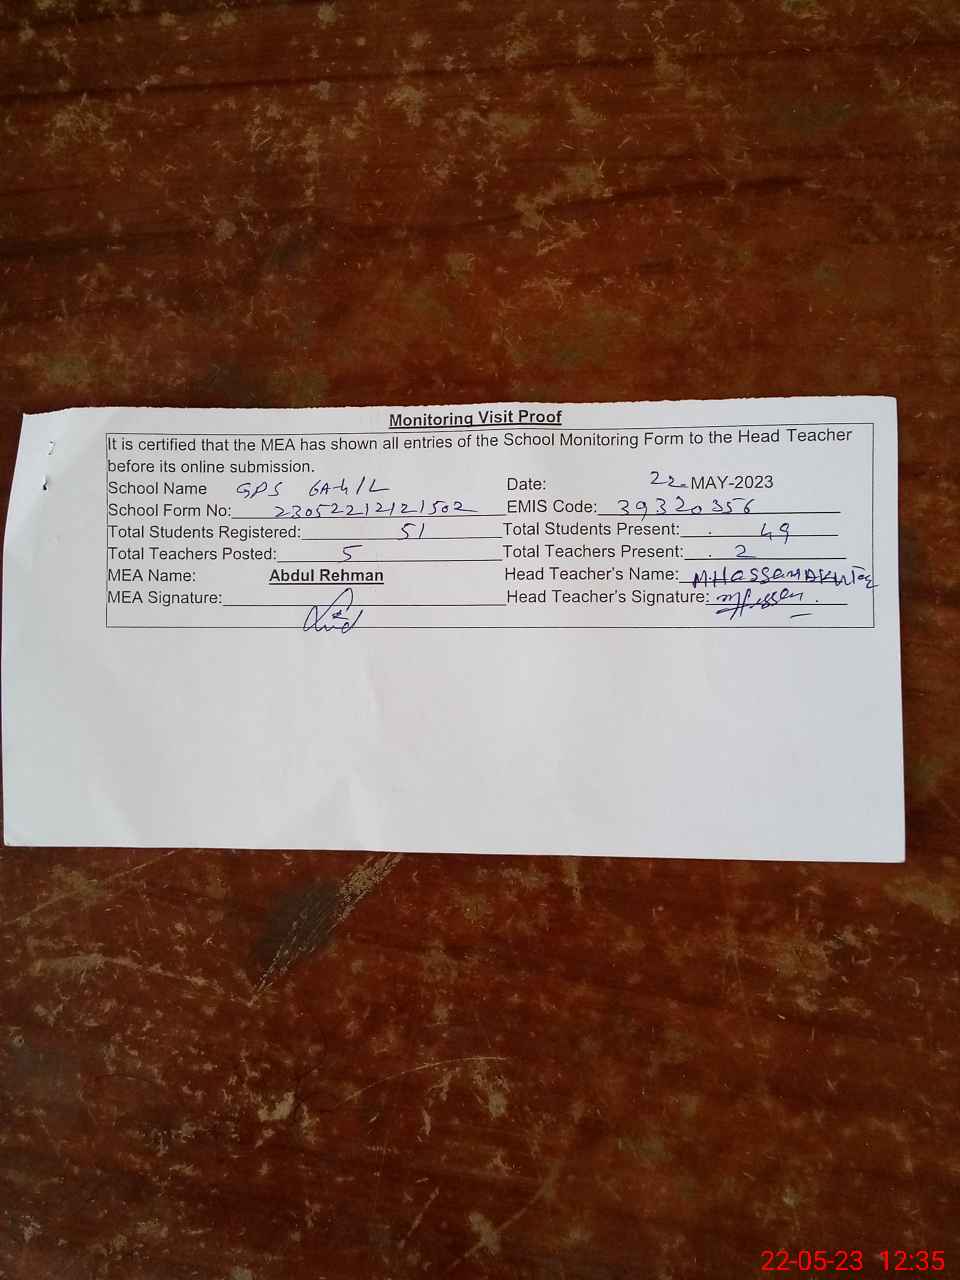 Monitoring Visit Proof
It is certified that the MEA has shown all entries of the School Monitoring Form to the Head Teacher
before its online submission.
School Name GPS 6A-4/L Date: 22 MAY-2023
School Form No: 23052212121502 EMIS Code: 39320356
Total Students Registered: 51 Total Students Present: 49
Total Teachers Posted: 5 Total Teachers Present: 2
MEA Name: Abdul Rehman Head Teacher's Name: M.Hassan
MEA Signature: Head Teacher's Signature:
22-05-23 12:35